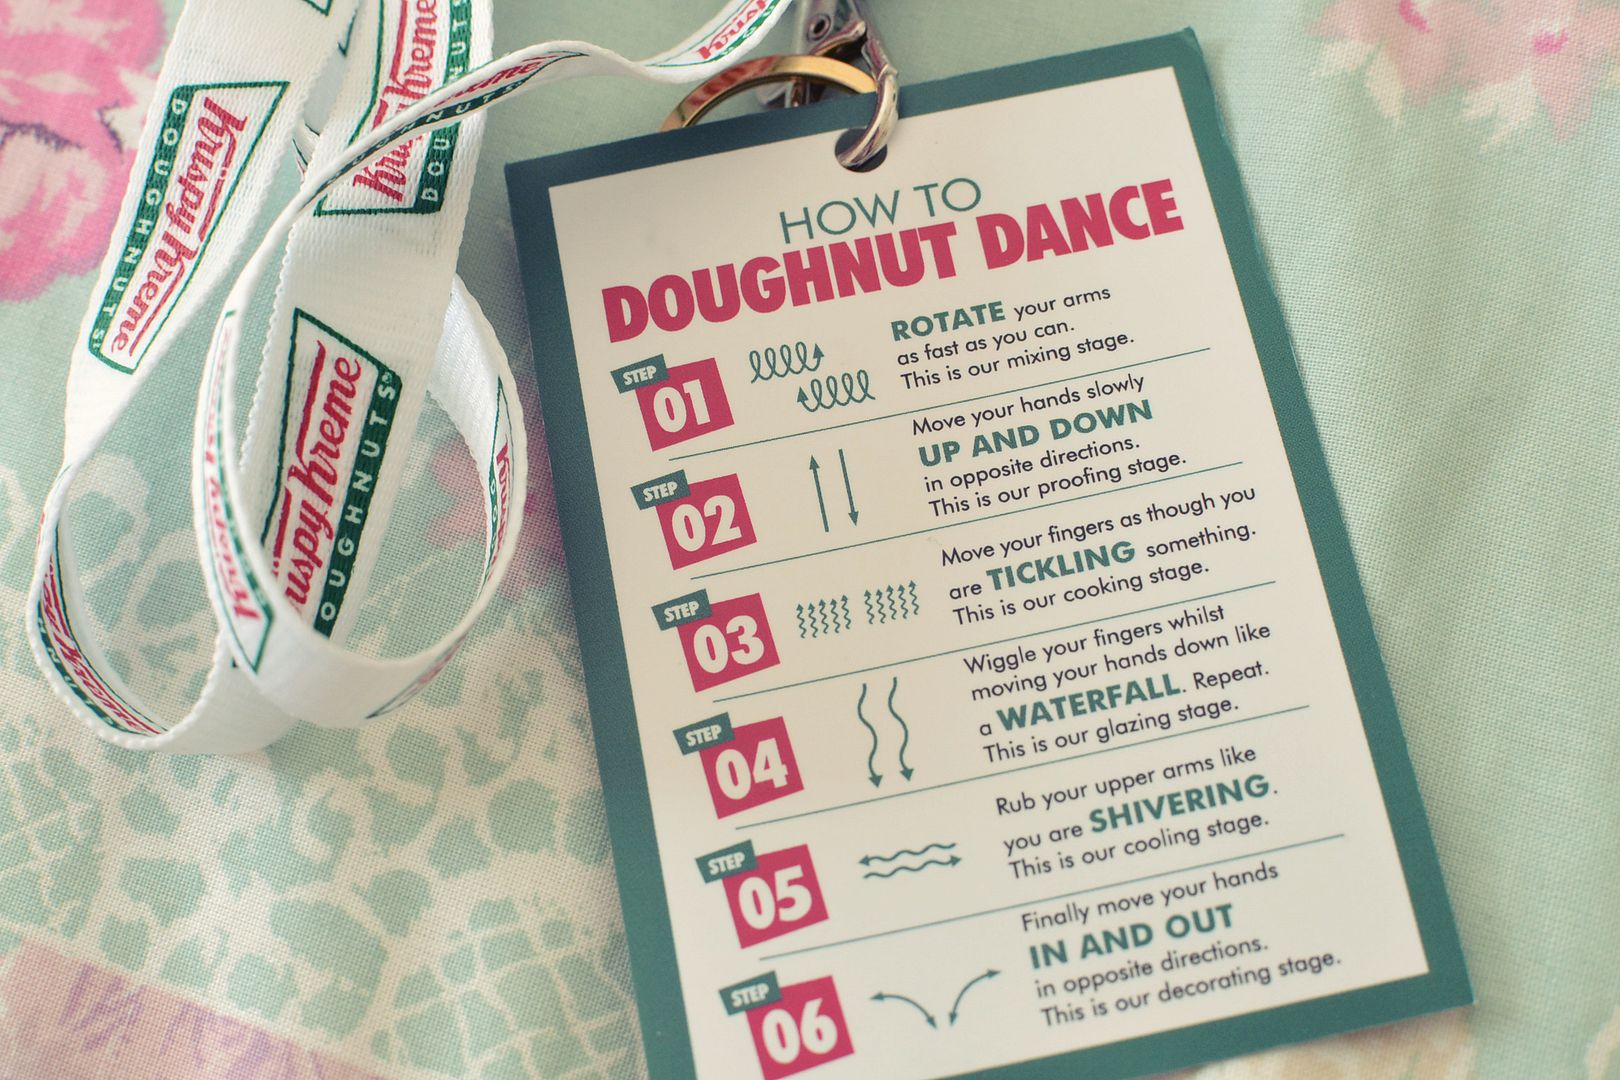 Krispy Kreme
DOUGHNUTS
Krispy Kreme
DOUGHNUTS
HOW TO
DOUGHNUT DANCE
STEP
01
ROTATE your arms
as fast as you can.
This is our mixing stage.
STEP
02
Move your hands slowly
UP AND DOWN
in opposite directions.
This is our proofing stage.
STEP
03
Move your fingers as though you
are TICKLING something.
This is our cooking stage.
STEP
04
Wiggle your fingers whilst
moving your hands down like
a WATERFALL. Repeat.
This is our glazing stage.
STEP
05
Rub your upper arms like
you are SHIVERING.
This is our cooling stage.
STEP
06
Finally move your hands
IN AND OUT
in opposite directions.
This is our decorating stage.